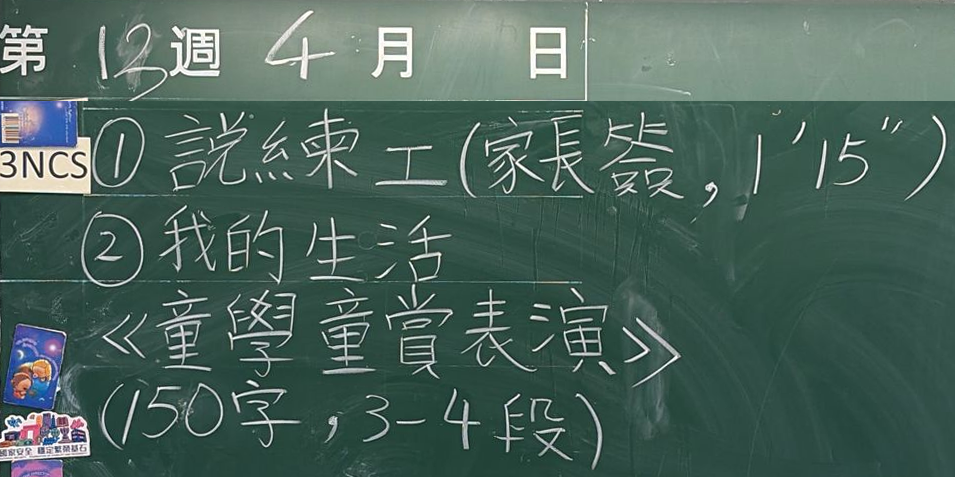 第 13 週 4 月 日
3NCS
① 説練工(家長簽, 1'15")
② 我的生活
《童學童賞表演》
(150字, 3-4段)
國家安全 穩定繁榮基石